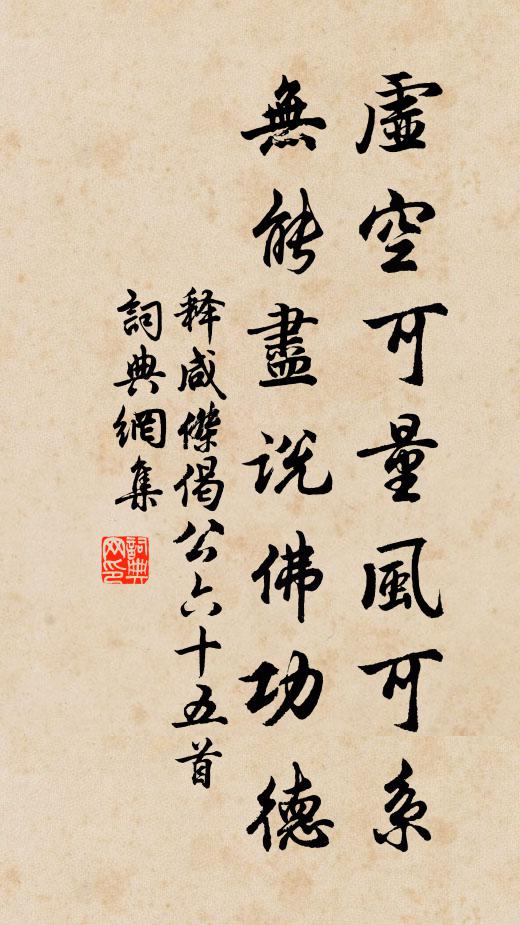 虛空可量風可系
無能盡說佛功德
释咸傑偈公六十五首
詞典網集
詞典網印